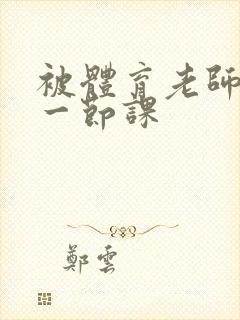 被體育老師
一節課
鄭雲